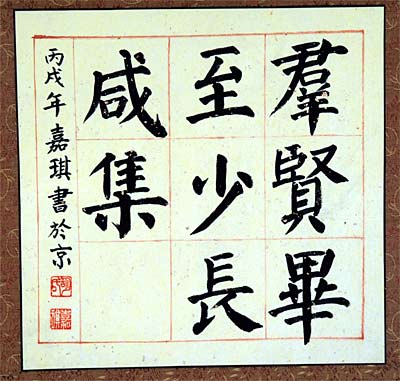 羣賢畢
至少長
咸集
丙戌年嘉琪書於京